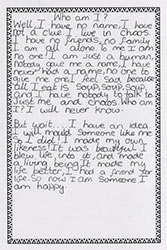 Who am I?
Well, I have no name. I have
not a clue. I live in chaos.
I have no friends, no family
I am all alone to me I am
no one. I am just a human,
nobody gave me a name. I have
never had a name, no one to
give me one. I feel sad because
all I eat is SOUP, SOUP, SOUP
and I have nobody to talk to
Just me and chaos. Who am
I? I will never know.

But wait... I have an idea.
I will mould someone like me
So I did! I made my own
likeness. It was beautiful. I
blew life into it, and made
a living being. It made my
life better. I had a friend for
life. So now I am Someone. I
am happy.